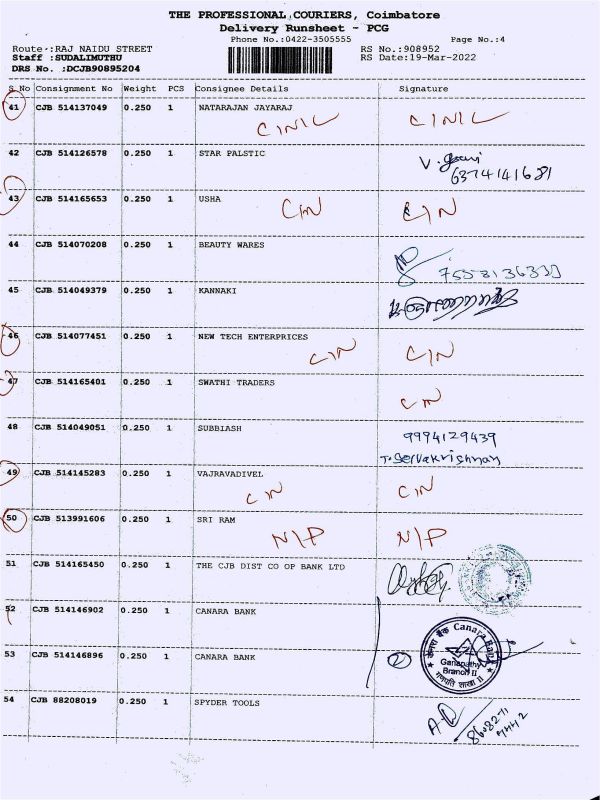 THE PROFESSIONAL COURIERS, Coimbatore
Delivery Runsheet - PCG
Phone No.:0422-3505555 Page No.:4
Route :RAJ NAIDU STREET RS No.:908952
Staff :SUDALIMUTHU RS Date:19-Mar-2022
DRS No. :DCJB90895204
S No Consignment No Weight PCS Consignee Details Signature
41 CJB 514137049 0.250 1 NATARAJAN JAYARAJ
CINIL CINIL
42 CJB 514126578 0.250 1 STAR PALSTIC
6374141681
43 CJB 514165653 0.250 1 USHA CIN CIN
44 CJB 514070208 0.250 1 BEAUTY WARES
45 CJB 514049379 0.250 1 KANNAKI
46 CJB 514077451 0.250 1 NEW TECH ENTERPRICES
CIN CIN
47 CJB 514165401 0.250 1 SWATHI TRADERS
CIN
48 CJB 514049051 0.250 1 SUBBIASH
9994129439
49 CJB 514145283 0.250 1 VAJRAVADIVEL
CIN CIN
50 CJB 513991606 0.250 1 SRI RAM
N/P N/P
51 CJB 514165450 0.250 1 THE CJB DIST CO OP BANK LTD
52 CJB 514146902 0.250 1 CANARA BANK
53 CJB 514146896 0.250 1 CANARA BANK
2
केनरा बैंक Canara Bank
Ganapathy
Branch II
गणपति शाखा II
54 CJB 88208019 0.250 1 SPYDER TOOLS